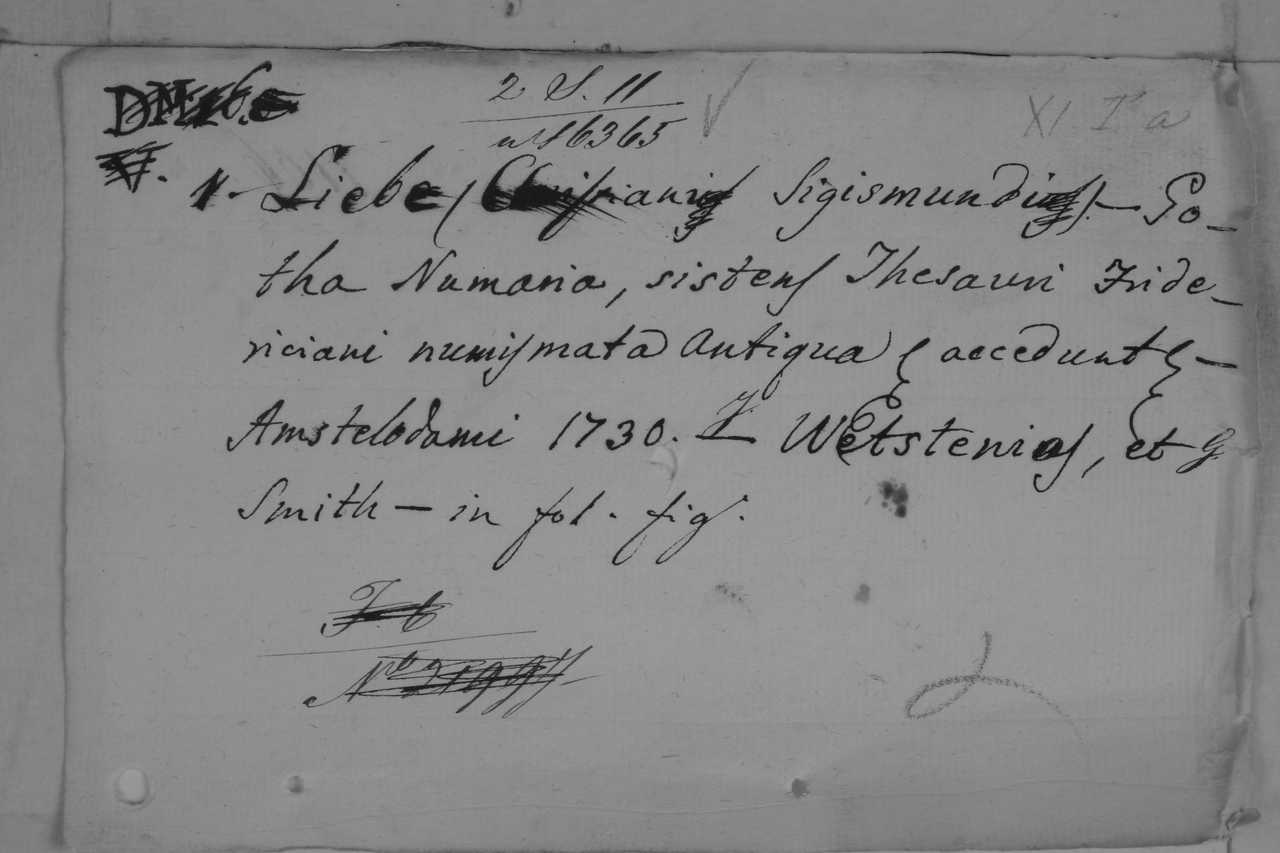 2 S. 11
XI I a
16365
1. Liebe (Christiani Sigismundi) — Go-
tha Numaria, sistens Thesauri Fride-
riciani numismata Antiqua (accedunt) —
Amstelodami 1730. — Wetstenios, et G
Smith — in fol. fig.
F b